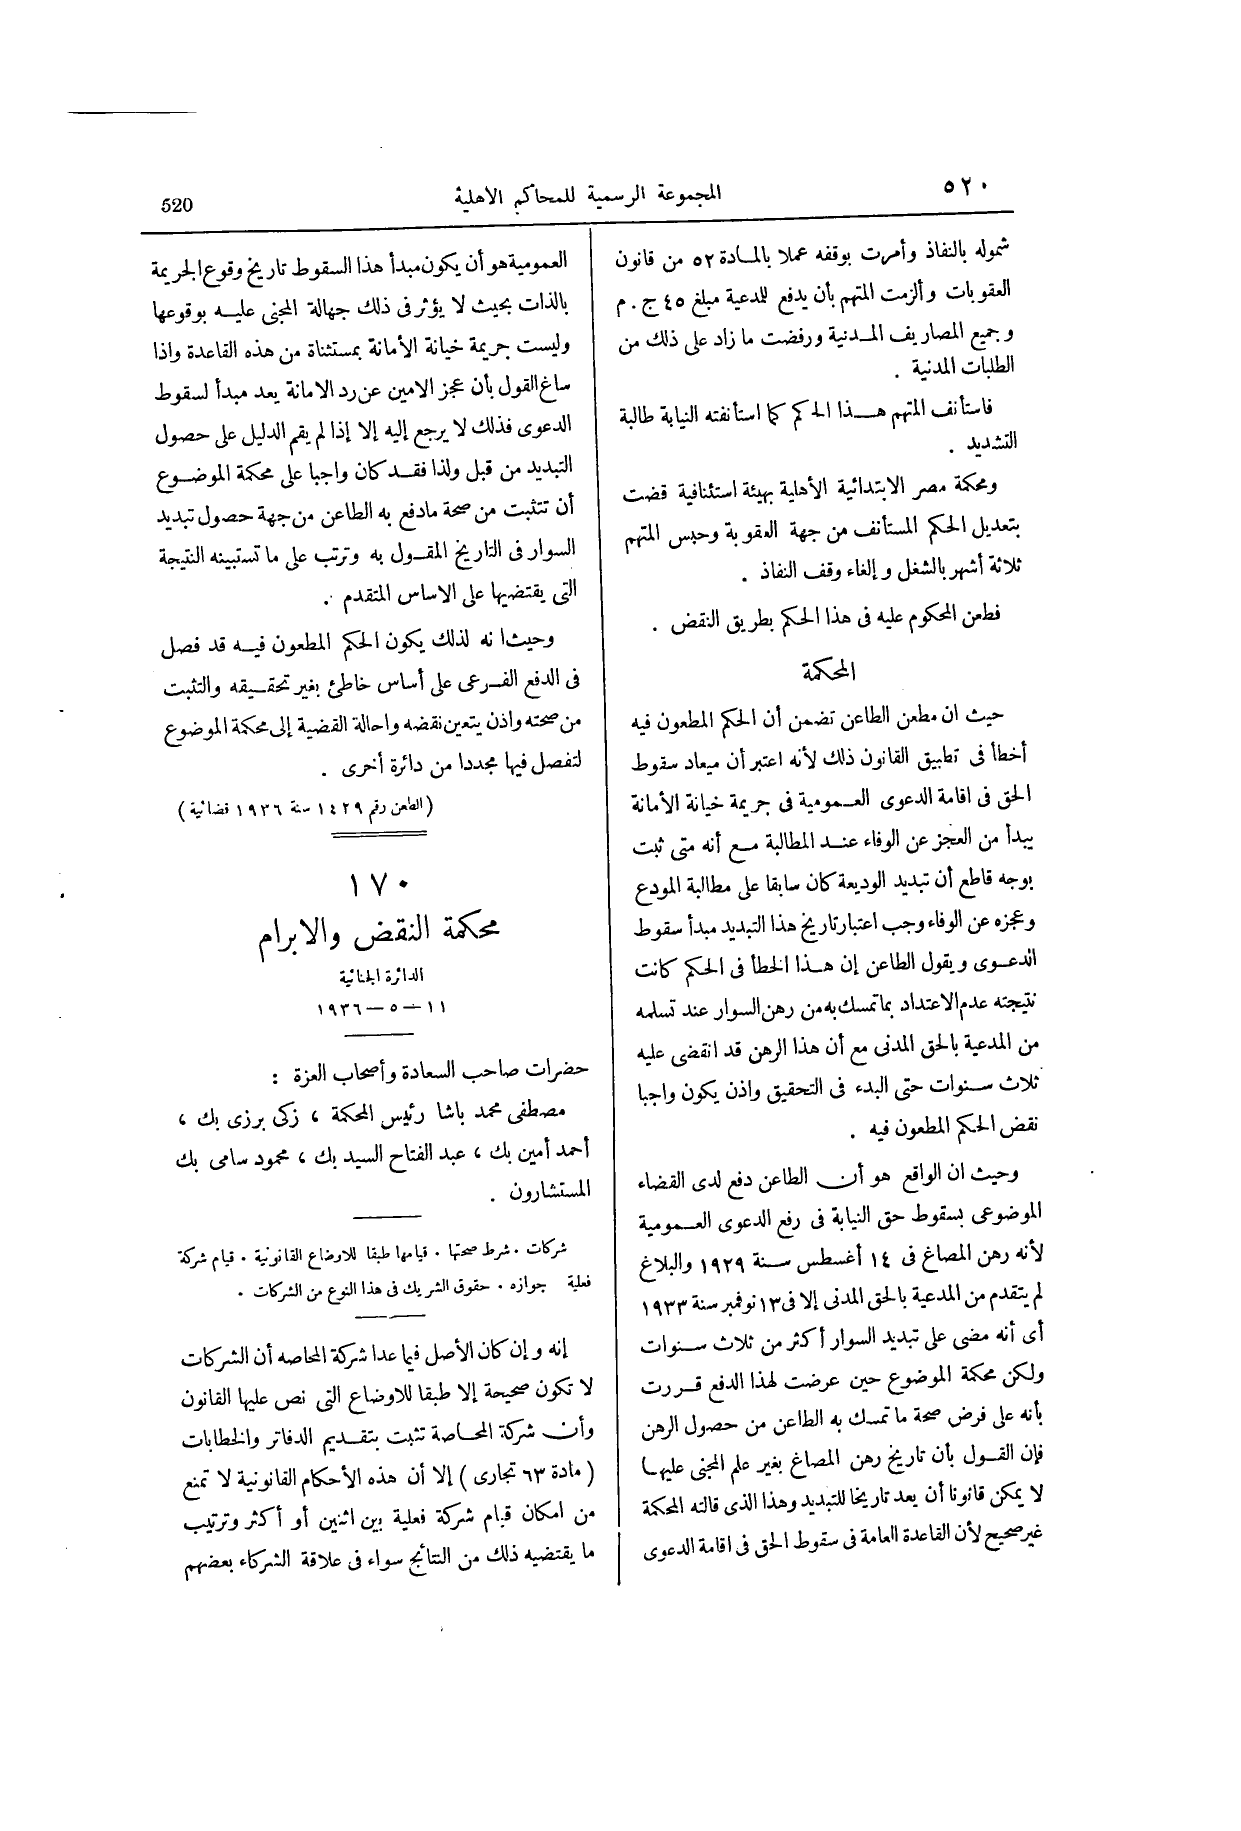 ٥٢٠
المجموعة الرسمية للمحاكم الاهلية
520
شموله بالنفاذ وأمرت بوقفه عملا بالمادة ٥٢ من قانون
العقوبات وألزمت المتهم بأن يدفع للمدعية مبلغ ٤٥ ج . م
وجميع المصاريف المدنية ورفضت ما زاد على ذلك من
الطلبات المدنية .
فاستأنف المتهم هذا الحكم كما استأنفته النيابة طالبة
التشديد .
ومحكمة مصر الابتدائية الأهلية بهيئة استئنافية قضت
بتعديل الحكم المستأنف من جهة العقوبة وحبس المتهم
ثلاثة أشهر بالشغل وإلغاء وقف النفاذ .
فطعن المحكوم عليه فى هذا الحكم بطريق النقض .
المحكمة
حيث ان مطعن الطاعن تضمن أن الحكم المطعون فيه
أخطأ فى تطبيق القانون ذلك لأنه اعتبر أن ميعاد سقوط
الحق فى اقامة الدعوى العمومية فى جريمة خيانة الأمانة
يبدأ من العجز عن الوفاء عند المطالبة مع أنه متى ثبت
بوجه قاطع أن تبديد الوديعة كان سابقا على مطالبة المودع
وعجزه عن الوفاء وجب اعتبار تاريخ هذا التبديد مبدأ سقوط
الدعوى ويقول الطاعن إن هذا الخطأ فى الحكم كانت
نتيجته عدم الاعتداد بما تمسك به من رهن السوار عند تسلمه
من المدعية بالحق المدنى مع أن هذا الرهن قد انقضى عليه
ثلاث سنوات حتى البدء فى التحقيق واذن يكون واجبا
نقض الحكم المطعون فيه .
وحيث ان الواقع هو أن الطاعن دفع لدى القضاء
الموضوعى بسقوط حق النيابة فى رفع الدعوى العمومية
لأنه رهن المصاغ فى ١٤ أغسطس سنة ١٩٢٩ والبلاغ
لم يتقدم من المدعية بالحق المدنى إلا فى ١٣ نوفمبر سنة ١٩٣٣
أى أنه مضى على تبديد السوار أكثر من ثلاث سنوات
ولكن محكمة الموضوع حين عرضت لهذا الدفع قررت
بأنه على فرض صحة ما تمسك به الطاعن من حصول الرهن
فإن القول بأن تاريخ رهن المصاغ بغير علم المجنى عليها
لا يمكن قانونا أن يعد تاريخا للتبديد وهذا الذى قالته المحكمة
غير صحيح لأن القاعدة العامة فى سقوط الحق فى اقامة الدعوى
العمومية هو أن يكون مبدأ هذا السقوط تاريخ وقوع الجريمة
بالذات بحيث لا يؤثر فى ذلك جهالة المجنى عليه بوقوعها
وليست جريمة خيانة الأمانة بمستثناة من هذه القاعدة واذا
ساغ القول بأن عجز الامين عن رد الامانة يعد مبدأ لسقوط
الدعوى فذلك لا يرجع إليه إلا إذا لم يقم الدليل على حصول
التبديد من قبل ولذا فقد كان واجبا على محكمة الموضوع
أن تتثبت من صحة مادفع به الطاعن من جهة حصول تبديد
السوار فى التاريخ المقول به وترتب على ما تستبينه النتيجة
التى يقتضيها على الاساس المتقدم .
وحيث انه لذلك يكون الحكم المطعون فيه قد فصل
فى الدفع الفرعى على أساس خاطئ بغير تحقيقه والتثبت
من صحته واذن يتعين نقضه واحالة القضية إلى محكمة الموضوع
لتفصل فيها مجددا من دائرة أخرى .
( الطعن رقم ١٤٢٩ سنة ١٩٣٦ قضائية )
١٧٠
محكمة النقض والابرام
الدائرة الجنائية
١١ – ٥ – ١٩٣٦
حضرات صاحب السعادة وأصحاب العزة :
مصطفى محمد باشا رئيس المحكمة ، زكى برزى بك ،
أحمد أمين بك ، عبد الفتاح السيد بك ، محمود سامى بك
المستشارون .
شركات . شرط صحتها . قيامها طبقا للاوضاع القانونية . قيام شركة
فعلية جوازه . حقوق الشريك فى هذا النوع من الشركات .
إنه وإن كان الأصل فيما عدا شركة المحاصه أن الشركات
لا تكون صحيحة إلا طبقا للاوضاع التى نص عليها القانون
وأن شركة المحاصة تثبت بتقديم الدفاتر والخطابات
( مادة ٦٣ تجارى ) إلا أن هذه الأحكام القانونية لا تمنع
من امكان قيام شركة فعلية بين اثنين أو أكثر وترتيب
ما يقتضيه ذلك من النتائج سواء فى علاقة الشركاء بعضهم